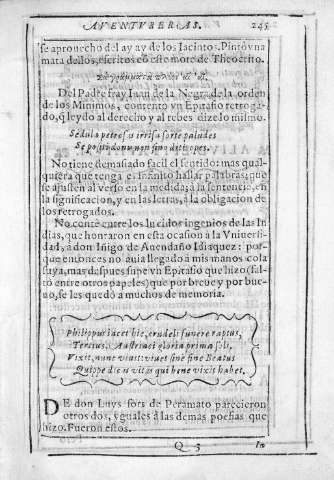 AVENTVRERAS. 245
se aprouecho del ay ay de los Iacintos. Pinto vna
mata dellos, escritos cõ este mote de Theocrito.
Del Padre fray Iuan de la Negra de la orden
de los Minimos, contento vn Epitafio retrogado,
q̃ leydo al derecho y al rebes dize lo mismo.
No tiene demasiado facil el sentido: mas qual-
quiera que tenga es infinito hallar palabras; que
se ajusten al verso en la medida; a la sentencia, en
la significacion, y en las letras, à la obligacion de
los retrogados.
No conte entre los lucidos ingenios de las In
dias, que honraron en esta ocasion a la Vniuersi
dad, à don Iñigo de Auendaño Idiaquez: por-
que entonces no auia llegado à mis manos cosa
suya, mas despues supe vn Epitafio que hizo (fal
tò entre otros papeles) que por breue y por bue-
no, se les quedò a muchos de memoria.
Philippus iacet hic, crudeli funere raptus,
Tertius: Austriaci gloria prima soli,
Vixit, nunc viuit: viuet sine fine Beatus
Quippe die is vitæ qui bene vixit habet.
DE don Luys fors de Peramato parecieron
otros dos, yguales à las demas poesias que
hizo. Fueron estos.
Q 5